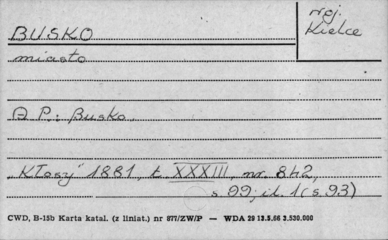 BUSKO
woj.
Kielce
miasto
A P.: Busko.
"Kłosy" 1881, t. XXXIII, nr. 842,
s. 99; il. 1 (s. 93)
CWD, B-15b Karta katal. (z liniat.) nr 877/ZW/P — WDA 29 13.5.66 3.530.000